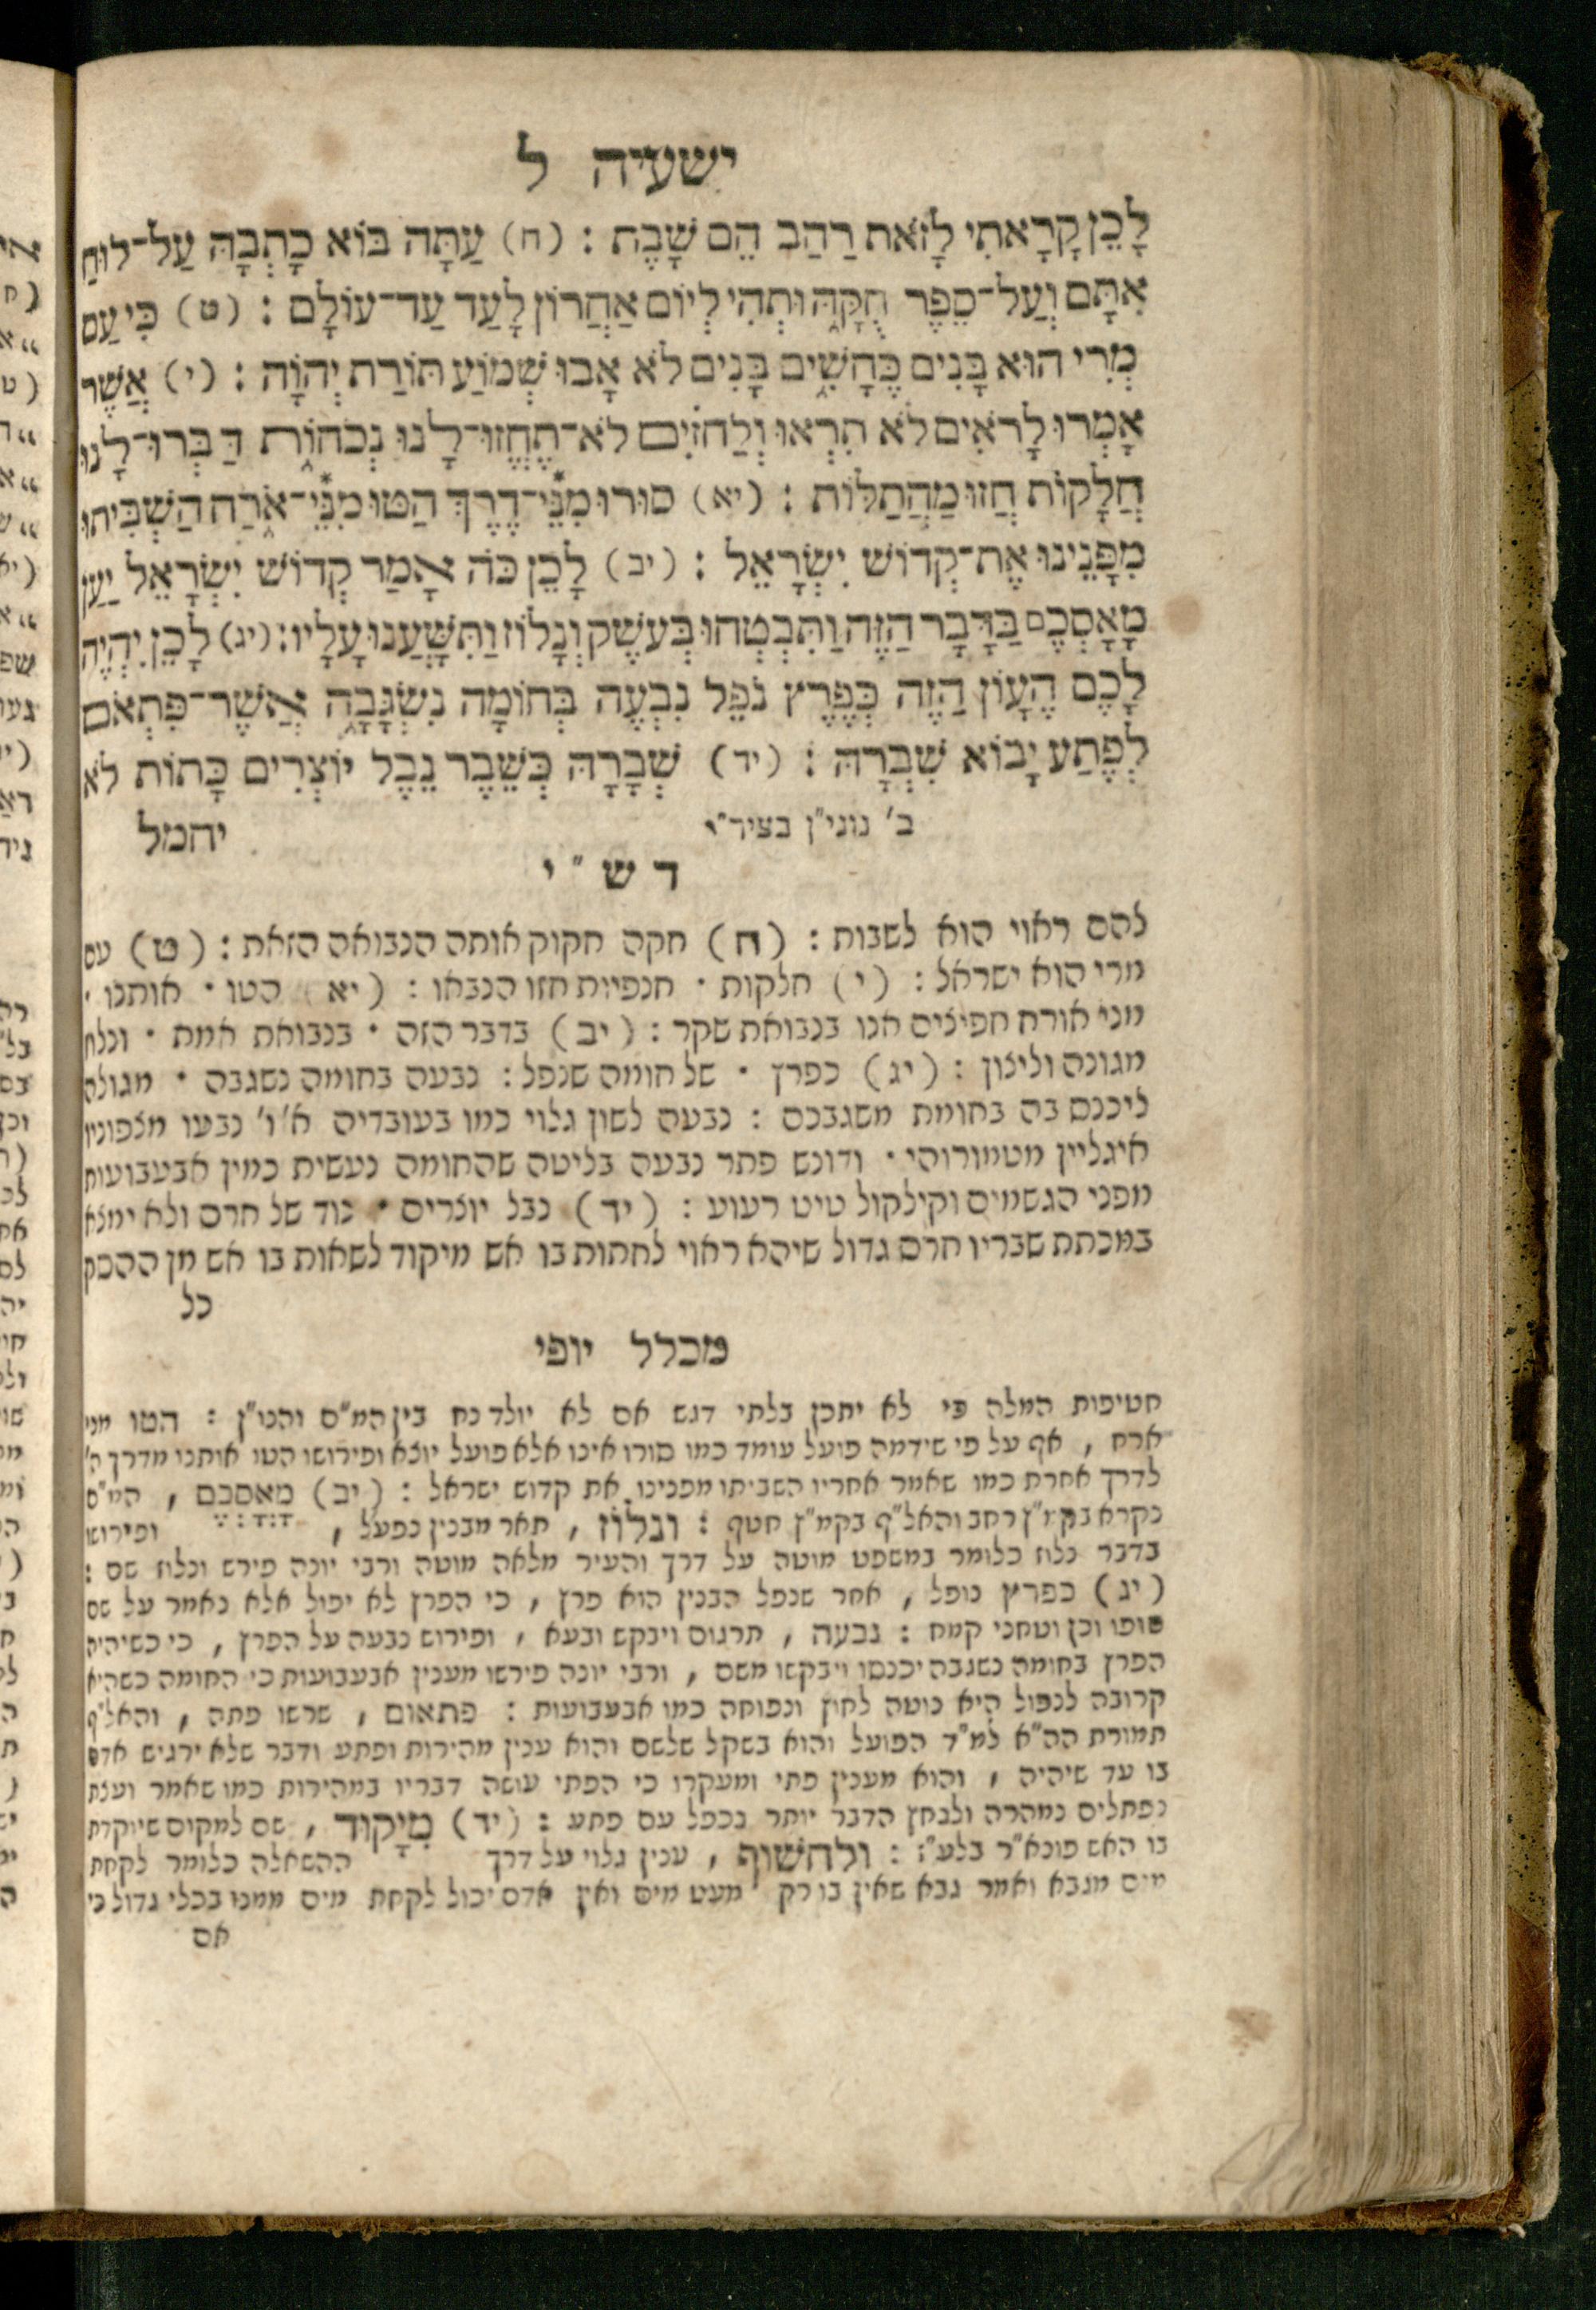 ישעיה ל
לָכֵן קָרָאתִי לָזֹאת רַהַב הֵם שָׁבֶת : (ח) עַתָּה בּוֹא כָתְבָהּ עַל־לוּחַ
אִתָּם וְעַל־סֵפֶר חֻקָּהּ וּתְהִי לְיוֹם אַחֲרוֹן לָעַד עַד־עוֹלָם : (ט) כִּי עַם
מְרִי הוּא בָּנִים כֶּחָשִׁים בָּנִים לֹא אָבוּ שְׁמוֹעַ תּוֹרַת יְהוָֹה : (י) אֲשֶׁר
אָמְרוּ לָרֹאִים לֹא תִרְאוּ וְלַחֹזִים לֹא־תֶחֱזוּ־לָנוּ נְכֹחוֹת דַּבְּרוּ־לָנוּ
חֲלָקוֹת חֲזוּ מַהֲתַלּוֹת : (יא) סוּרוּ מִנֵּי־דֶרֶךְ הַטּוּ מִנֵּי־אֹרַח הַשְׁבִּיתוּ
מִפָּנֵינוּ אֶת־קְדוֹשׁ יִשְׂרָאֵל : (יב) לָכֵן כֹּה אָמַר קְדוֹשׁ יִשְׂרָאֵל יַעַן
מָאָסְכֶם בַּדָּבָר הַזֶּה וַתִּבְטְחוּ בְּעֹשֶׁק וְנָלוֹז וַתִּשָּׁעֲנוּ עָלָיו : (יג) לָכֵן יִהְיֶה
לָכֶם הֶעָוֹן הַזֶּה כְּפֶרֶץ נֹפֵל נִבְעֶה בְּחוֹמָה נִשְׂגָּבָה אֲשֶׁר־פִּתְאֹם
לְפֶתַע יָבוֹא שִׁבְרָהּ : (יד) שְׁבָרָהּ כְּשֵׁבֶר נֵבֶל יוֹצְרִים כָּתוֹת לֹא
ב' נוני"ן בציר"י
יחמל
רש"י
להם ראוי הוא לשבות : (ח) חקה חקוק אותה הנבואה הזאת : (ט) עם
מרי הוא ישראל : (י) חלקות · חנפיות חזו הנבאו : (יא) הטו · אותנו ·
מני אורח חפיצים אנו בנבואת שקר : (יב) בדבר הזה · בנבואת אמת · ונלוז
מגונה וליצון : (יג) כפרץ · של חומה שנפל : נבעה בחומה נשגבה · מגולה
ליכנס בה בחומת משגבכם : נבעה לשון גלוי כמו בעובדיה א' ו' נבעו מצפוניו
איגליין מטמורוהי · ודונש פתר נבעה בליטה שהחומה נעשית כמין אבעבועות
מפני הגשמים וקילקול טיט רעוע : (יד) נבל יוצרים · נוד של חרס ולא ימצא
במכתת שבריו חרס גדול שיהא ראוי לחתות בו אש מיקוד לשאות בו אש מן ההסק
כל
מכלל יופי
חטיפות המלה פי לא יתכן בלתי דגש אם לא יולד נח בין המ"ם והנו"ן : הטו מני
ארח , אף על פי שידמה פועל עומד כמו סורו אינו אלא פועל יוצא ופירושו הטו אותנו מדרך ה'
לדרך אחרת כמו שאמר אחריו השביתו מפנינו את קדוש ישראל : (יב) מָאָסְכֶם , המ"ם
נקרא בקמ"ץ רחב והאל"ף בקמ"ץ חטף : ונלוז , תאר מבנין נפעל , ופירושו
בדבר נלוז כלומר במשפט מוטה על דרך והעיר מלאה מוטה ורבי יונה פירש ונלוז שם :
(יג) כפרץ נופל , אחר שנפל הבנין הוא פרץ , כי הפרץ לא יפול אלא נאמר על שם
סופו וכן וטחני קמח : נבעה , תרגום ויבקש ובעא , ופירוש נבעה על הפרץ , כי כשיהיה
הפרץ בחומה נשגבה יכנסו ויבקשו משם , ורבי יונה פירשו מענין אבעבועות כי החומה כשהיא
קרובה לנפול היא נוטה לחוץ ונפוחה כמו אבעבועות : פתאום , שרשו פתה , והאל"ף
תמורת הה"א למ"ד הפועל והוא בשקל שלשם והוא ענין מהירות ופתע ודבר שלא ירגיש אדם
בו עד שיהיה , והוא מענין פתי ומעקרו כי הפתי עושה דבריו במהירות כמו שאמר ועצת
נפתלים נמהרה ולנחץ הדבר יותר נכפל עם פתע : (יד) מִיָקוד , שם למקום שיוקדת
בו האש פוגא"ר בלע"ז : ולחשוף , ענין גלוי על דרך ההשאלה כלומר לקחת
מים מגבא ואמר גבא שאין בו רק מעט מים ואין אדם יכול לקחת מים ממנו בכלי גדול כי
אם